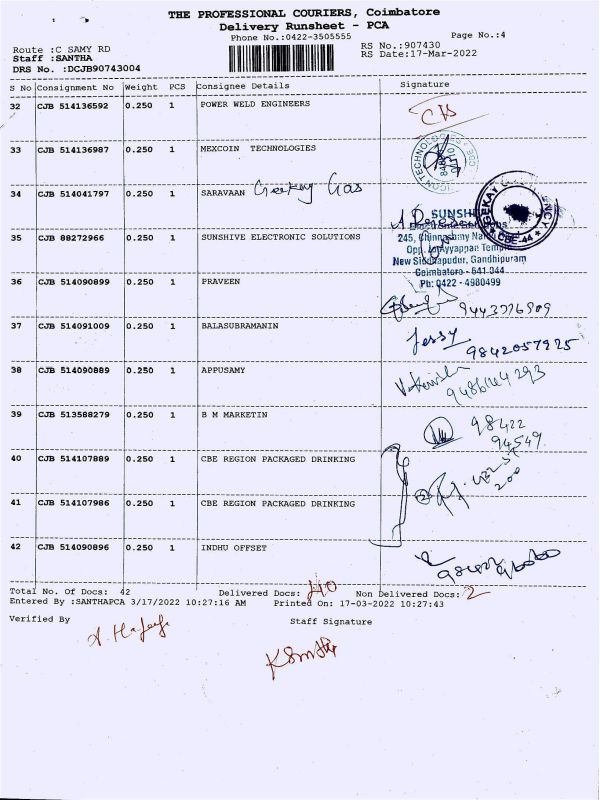 THE PROFESSIONAL COURIERS, Coimbatore
Delivery Runsheet - PCA
Phone No.:0422-3505555 Page No.:4
Route :C SAMY RD RS No.:907430
Staff :SANTHA RS Date:17-Mar-2022
DRS No. :DCJB90743004
S No Consignment No Weight PCS Consignee Details Signature
32 CJB 514136592 0.250 1 POWER WELD ENGINEERS
33 CJB 514136987 0.250 1 MEXCOIN TECHNOLOGIES
34 CJB 514041797 0.250 1 SARAVAAN Geekay Gas
35 CJB 88272966 0.250 1 SUNSHIVE ELECTRONIC SOLUTIONS
New Siddhapudur, Gandhipuram
Coimbatore - 641 044
Ph: 0422 - 4980499
36 CJB 514090899 0.250 1 PRAVEEN
37 CJB 514091009 0.250 1 BALASUBRAMANIN Jessy
9842057925
38 CJB 514090889 0.250 1 APPUSAMY
39 CJB 513588279 0.250 1 B M MARKETIN 98422
94549
40 CJB 514107889 0.250 1 CBE REGION PACKAGED DRINKING
41 CJB 514107986 0.250 1 CBE REGION PACKAGED DRINKING
42 CJB 514090896 0.250 1 INDHU OFFSET
Total No. Of Docs: 42 Delivered Docs: 40 Non Delivered Docs: 2
Entered By :SANTHAPCA 3/17/2022 10:27:16 AM Printed On: 17-03-2022 10:27:43
Verified By Staff Signature